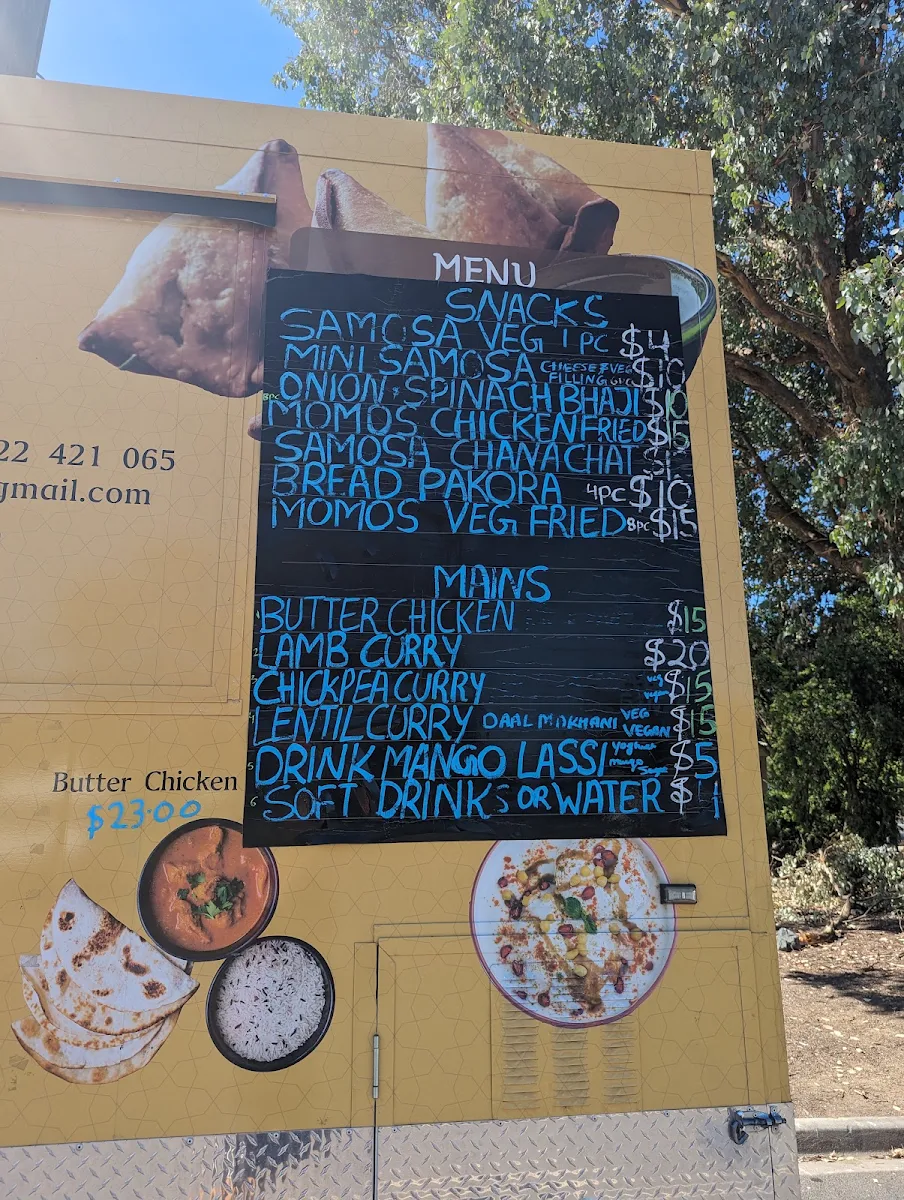 MENU
SNACKS
SAMOSA VEG 1 PC $4
MINI SAMOSA CHEESE & VEG FILLING 6PC $10
8PC ONION SPINACH BHAJI $10
MOMOS CHICKEN FRIED $15
SAMOSA CHANACHAT
BREAD PAKORA 4PC $10
MOMOS VEG FRIED 8PC $15
MAINS
BUTTER CHICKEN $15
2 LAMB CURRY $20
3 CHICKPEA CURRY veg vegan $15
4 LENTIL CURRY DAAL MAKHANI VEG VEGAN $15
5 DRINK MANGO LASSI yoghurt mango Sugar $5
6 SOFT DRINKS OR WATER $4
22 421 065
gmail.com
Butter Chicken
$23.00